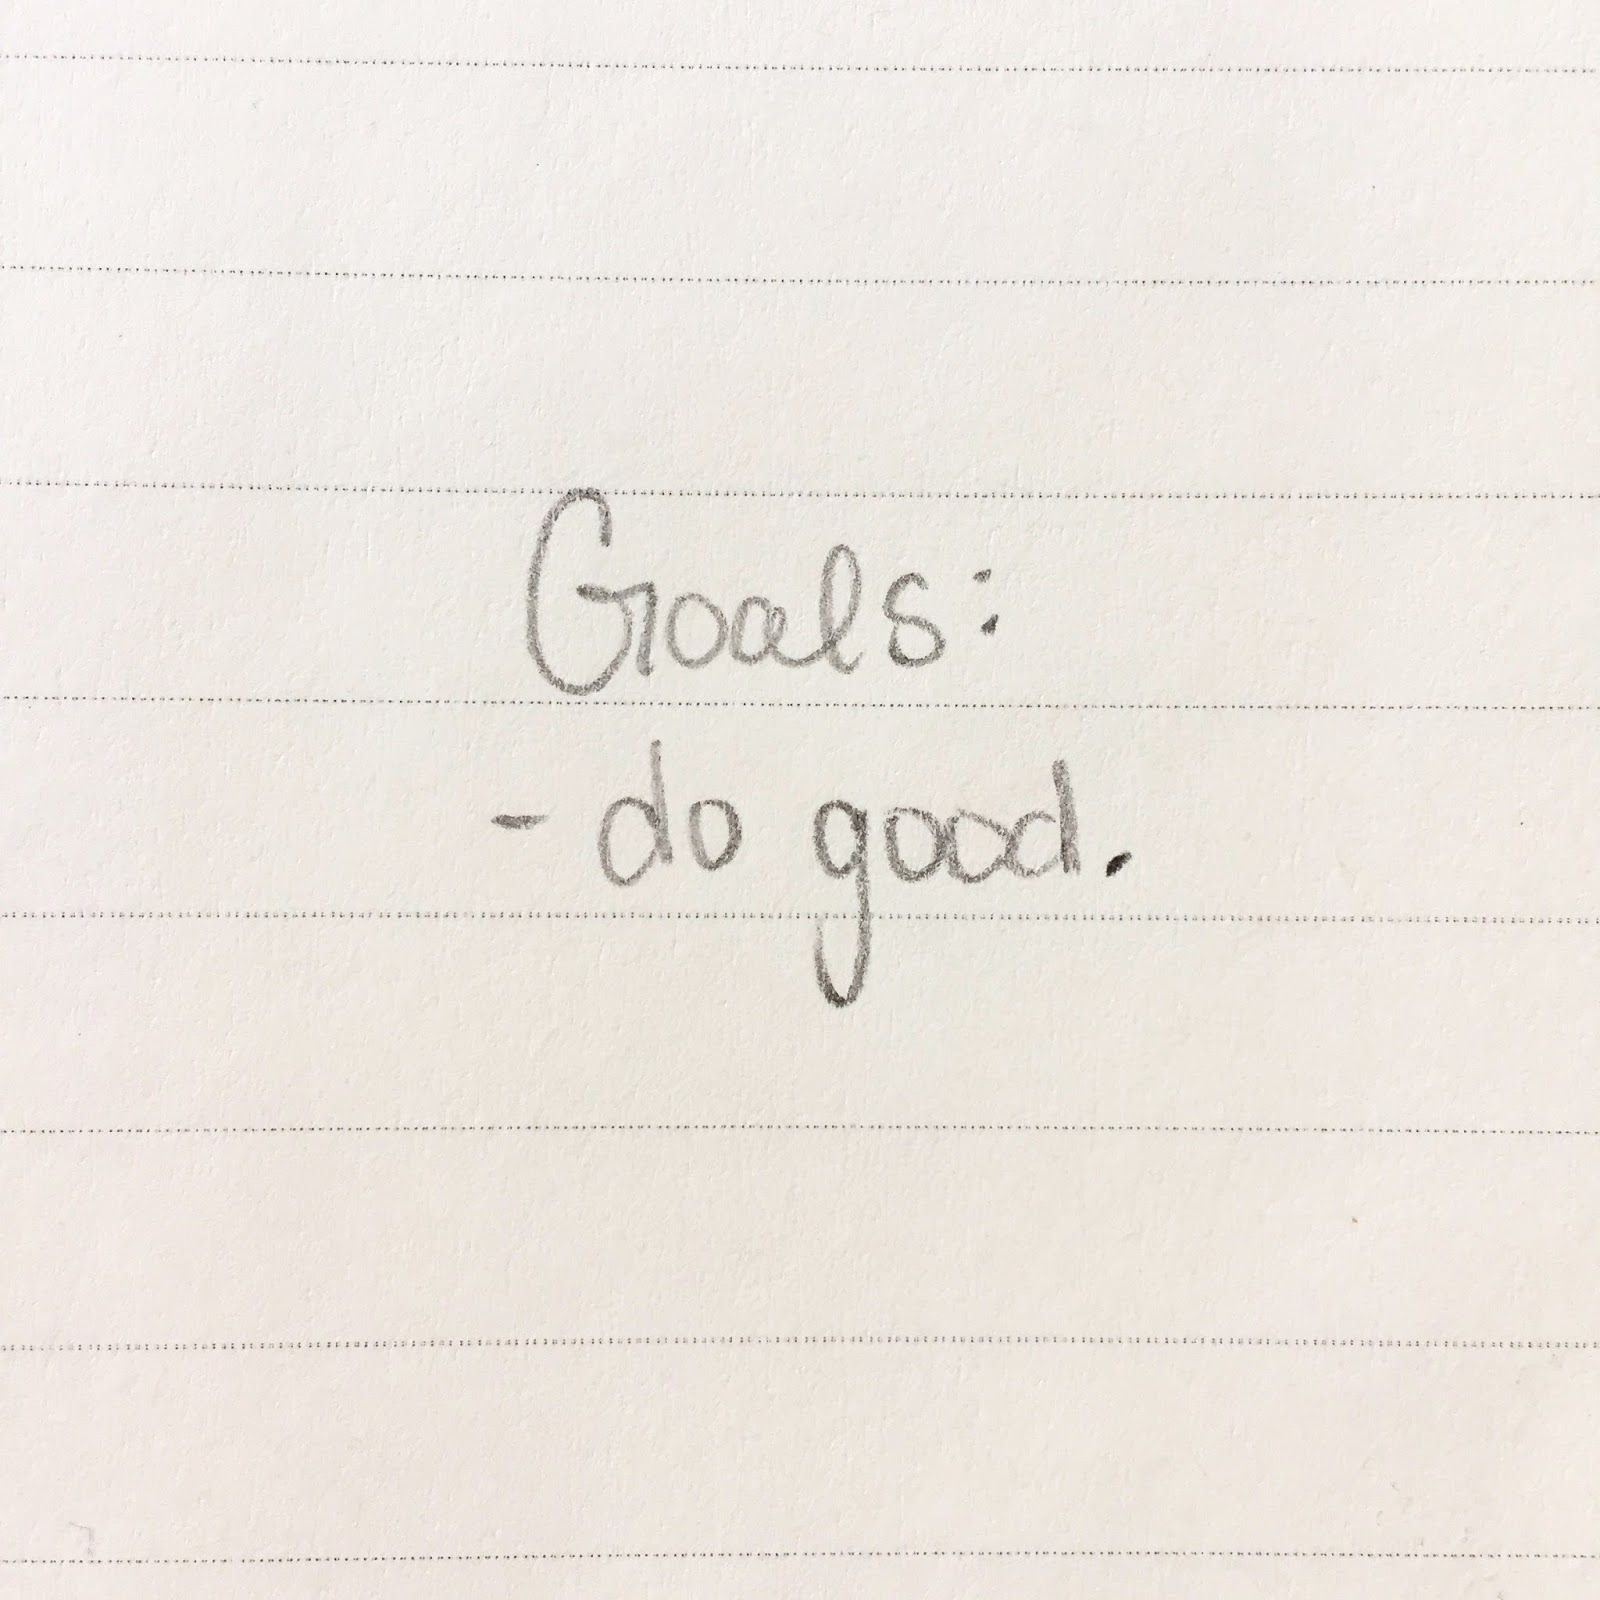 Goals:
- do good.